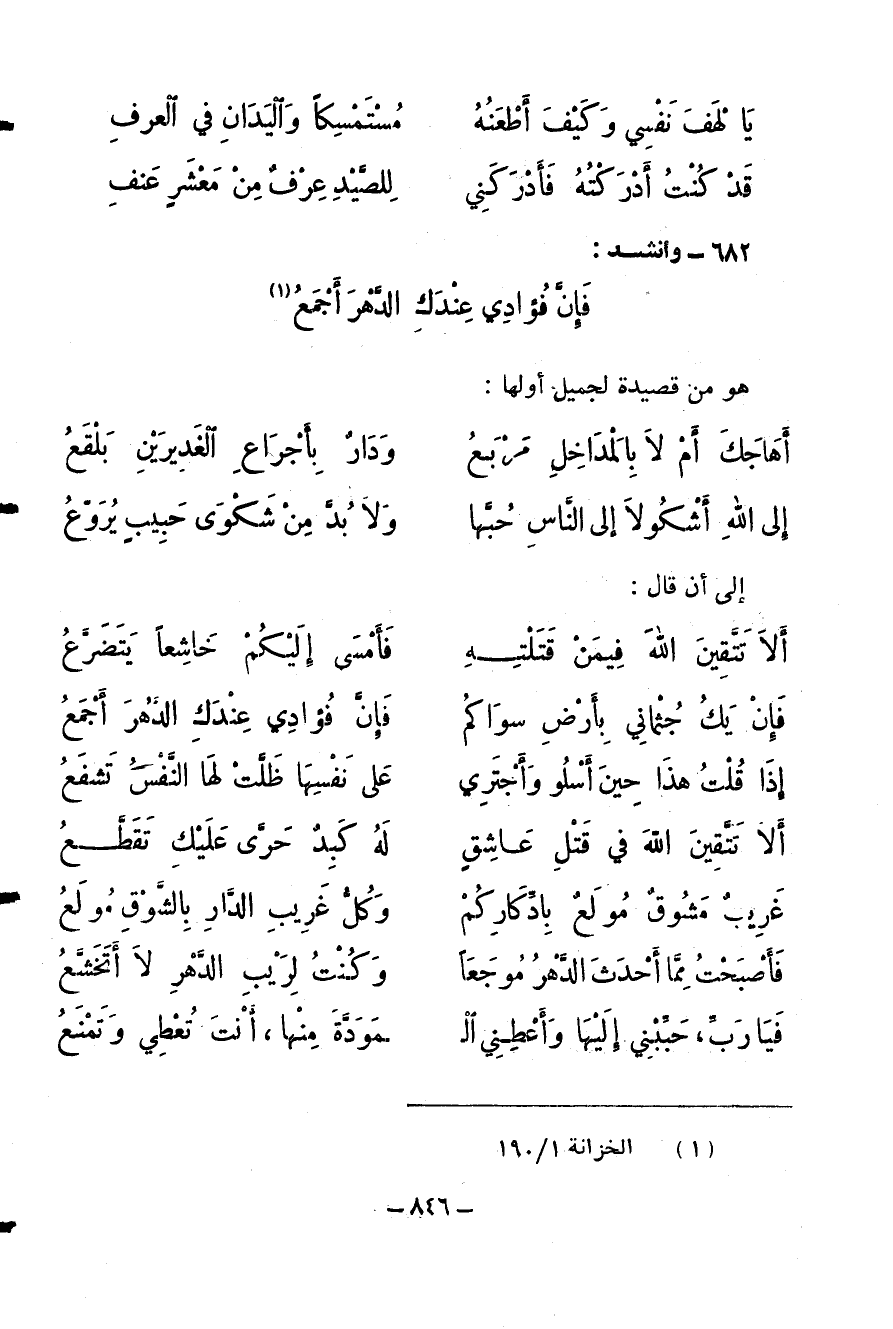 يَا لَهْفَ نَفْسِي وَكَيْفَ أَطْعَنُهُ مُسْتَمْسِكاً وَٱلْيَدَانِ في ٱلعرفِ
قَدْ كُنْتُ أَدْرَكْتُهُ فَأَدْرَكَنِي لِلصَّيْدِ عِرْفٌ مِنْ مَعْشَرٍ عَنفِ
٦٨٢ ـ وأنشـد :
فَإِنَّ فُؤَادِي عِنْدَكِ الدَّهْرَ أَجْمَعُ(١)
هو من قصيدة لجميل أولها :
أَهَاجَكَ أَمْ لاَ بِالْمَدَاخِلِ مَرْبَعُ وَدَارٌ بِأَجْرَاعِ ٱلْغَدِيرَيْنِ بَلْقَعُ
إلى اللهِ أَشْكُولاَ إلى النَّاسِ حُبَّها وَلاَ بُدَّ مِنْ شَكْوَى حَبِيبٍ يُرَوَّعُ
إلى أن قال :
أَلاَ تَتَّقِينَ اللهَ فِيمَنْ قَتَلْتِـــهِ فَأَمْسَى إِلَيْكُمْ خَاشِعاً يَتَضَرَّعُ
فَإِنْ يَكُ جُثْمانِي بِأَرْضِ سِوَاكُمُ فَإِنَّ فُؤَادِي عِنْدَكِ الدَّهْرَ أَجْمَعُ
إِذَا قُلْتُ هذَا حِينَ أَسْلُو وَأَجْتَرِي عَلى نَفْسِهَا ظَلَّتْ لَهَا النَّفْسُ تَشفَعُ
أَلاَ تَتَّقِينَ اللهَ في قَتْلِ عَاشِقٍ لَهُ كَبِدٌ حَرَّى عَلَيْكِ تَقَطَّــعُ
غَرِيبٌ مَشُوقٌ مُولَعٌ بِادِّكَارِكُمْ وَكُلُّ غَرِيبِ الدَّارِ بِالشَّوْقِ مُولَعُ
فَأَصْبَحْتُ مِمَّا أَحْدَثَ الدَّهْرُ مُوجَعَاً وَكُنْتُ لِرَيْبِ الدَّهْرِ لاَ أَتَخَشَّعُ
فَيَا رَبِّ، حَبِّبْنِي إِلَيْهَا وَأَعْطِنِي ٱلـ ـمَوَدَّةَ مِنْها، أَنْتَ تُعْطِي وَتَمْنَعُ
(١) الخزانة ١٩٠/١
ـ ٨٤٦ ـ